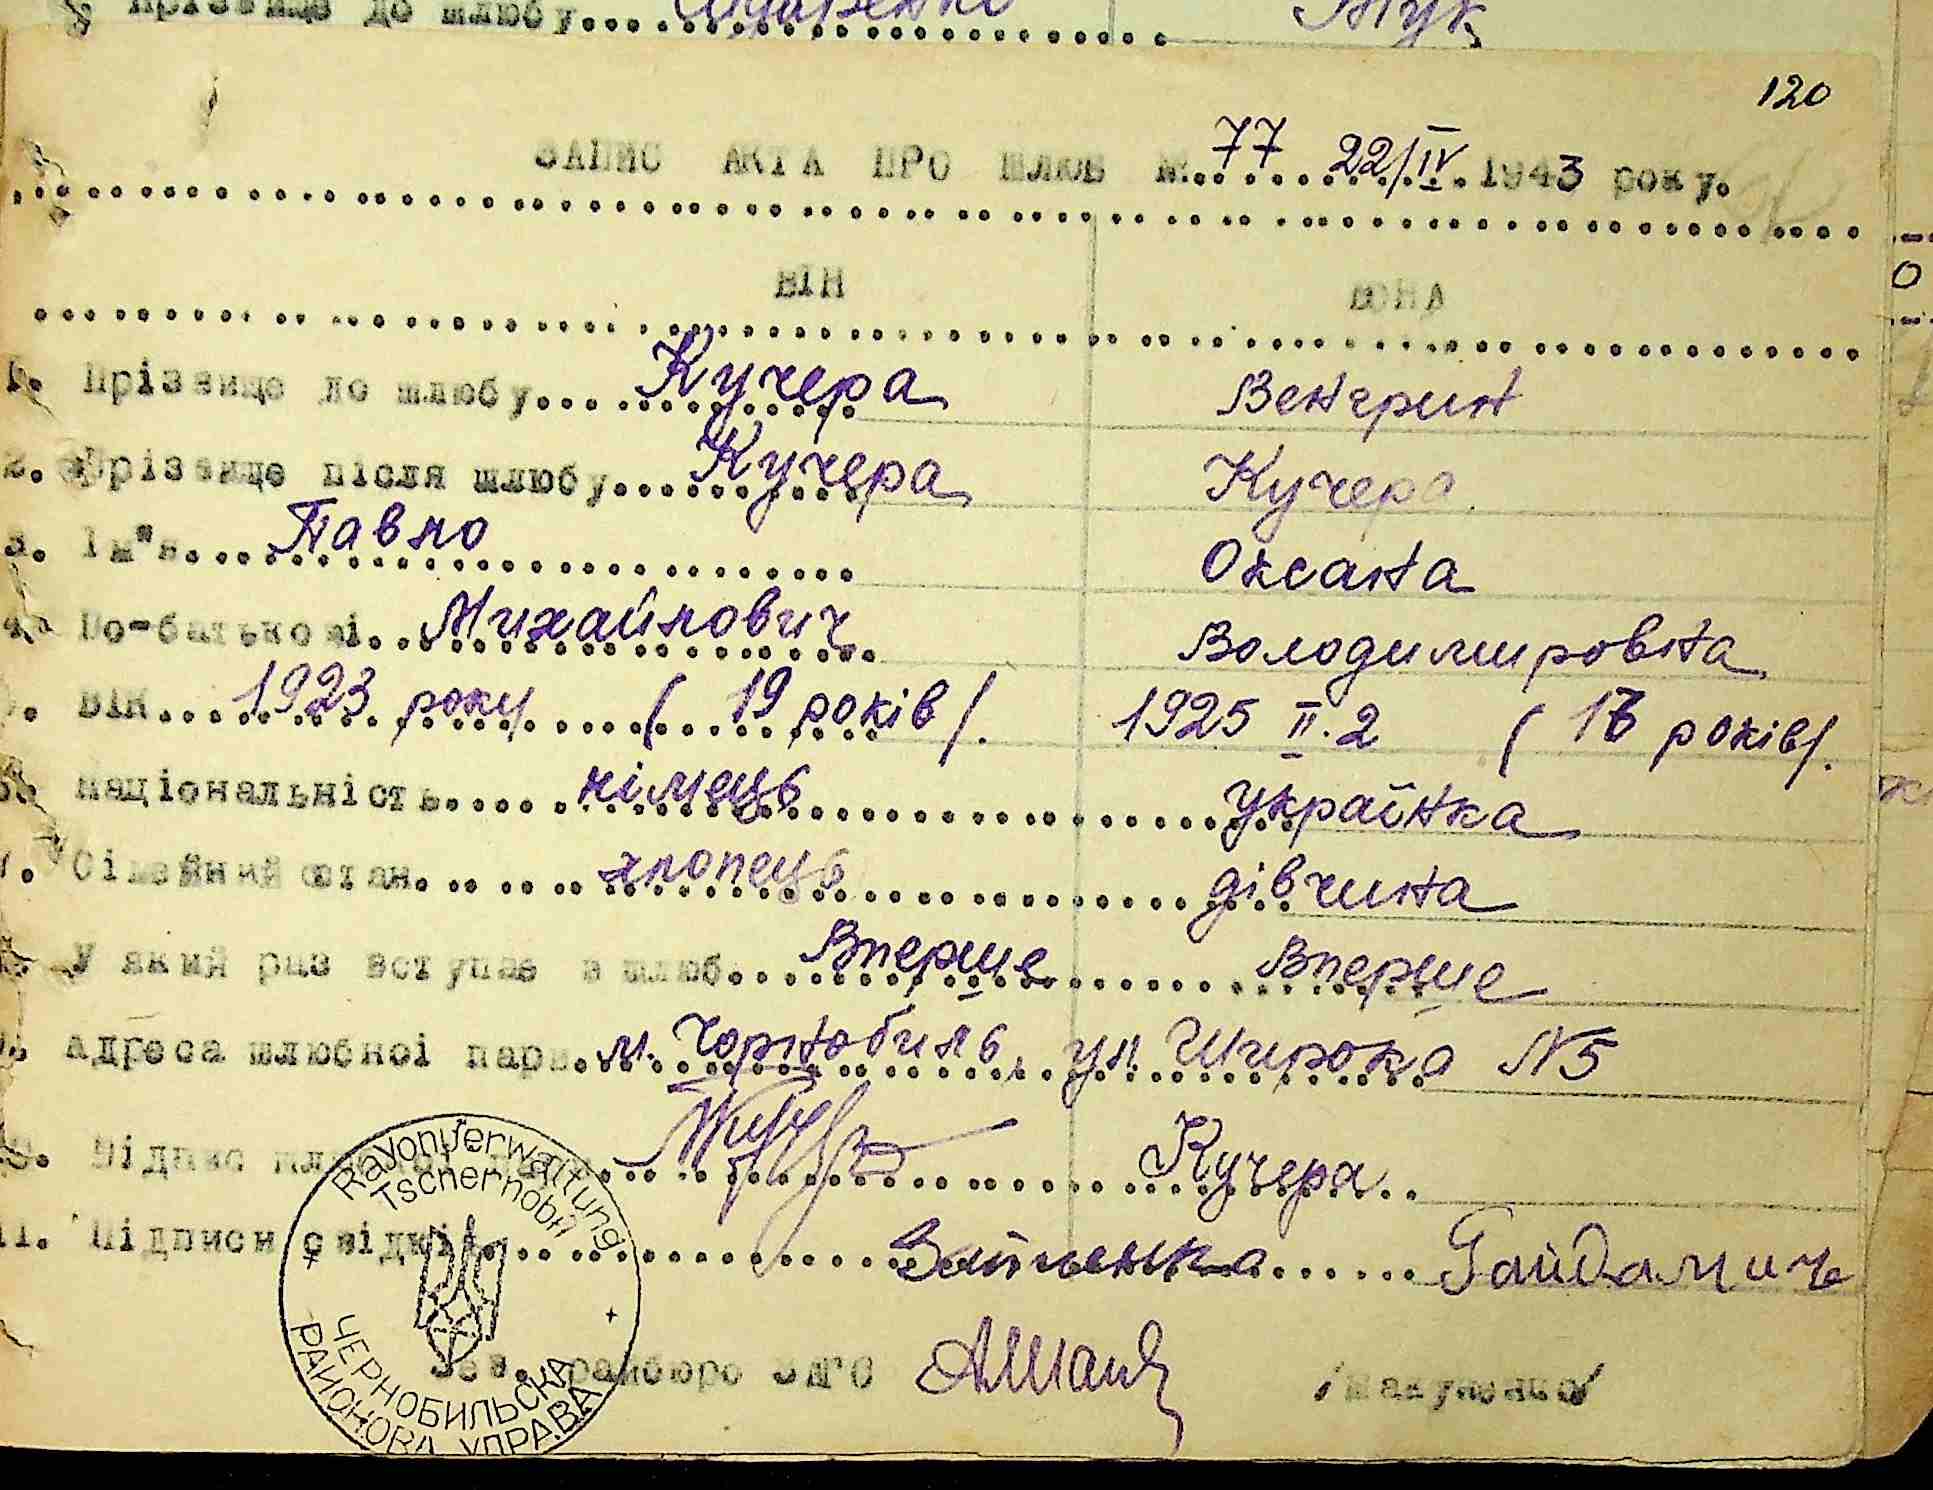 Прізвище до шлюбу.... Жук
120
ЗАПИС АКТА ПРО ШЛЮБ №. 77 22/IV 1943 року.
ВІН ВОНА
1. Прізвище до шлюбу.... Кучера Венгрин
2. Прізвище після шлюбу.... Кучера Кучера
3. Ім"я.... Павло Оксана
4. По-батькові... Михайлович Володимировна
5. Вік... 1923 року ( 19 років/. 1925 II.2 ( 18 років/.
6. Національність..... німець українка
7. Сімейний стан...... хлопець дівчина
8. У який раз вступає в шлюб.. Вперше Вперше
9. Адреса шлюбної пари. м. Чорнобиль, ул. Широка N5
10. Підпис Кучера..
11. Підписи свідків Гайдамич
Зав. райбюро ЗАГС /Шакуленко/
Rayonverwaltung
Tschernobil
ЧЕРНОБИЛЬСКА
РАЙОНОВА УПРАВА